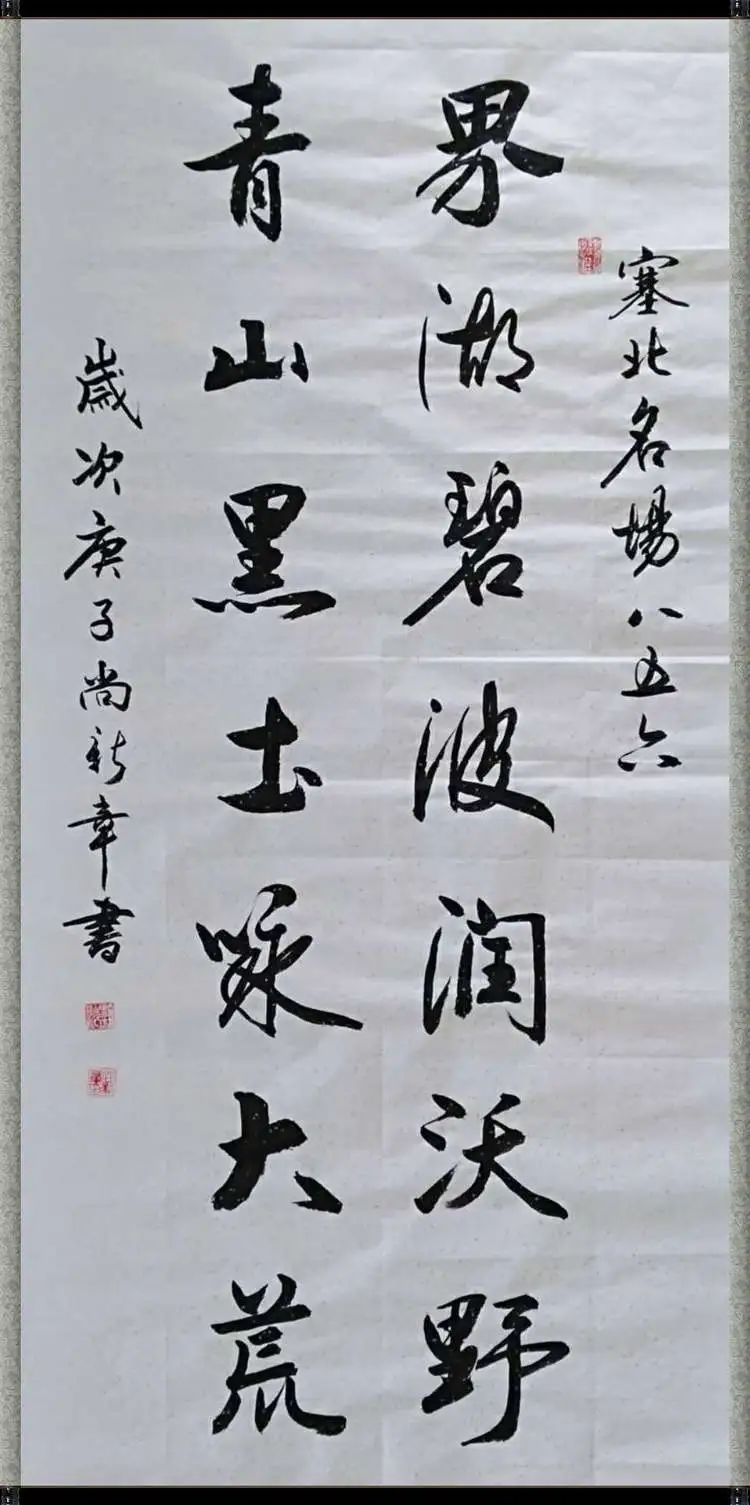 塞北名場八五六
界湖碧波润沃野
青山黑土咏大荒
歲次庚子尚新章書